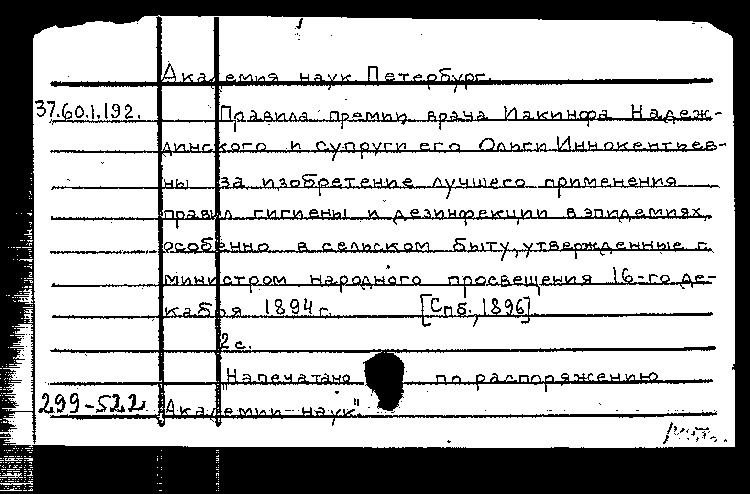 Академия наук. Петербург.
37.60.1.192. Правила премии врача Иакинфа Надеж-
динского и супруги его Ольги Иннокентьев-
ны за изобретение лучшего применения
правил гигиены и дезинфекции в эпидемиях,
особенно в сельском быту, утвержденные г.
министром народного просвещения 16-го де-
кабря 1894 г. [Спб., 1896].
2 с.
"Напечатано по распоряжению
299-522 Академии наук".